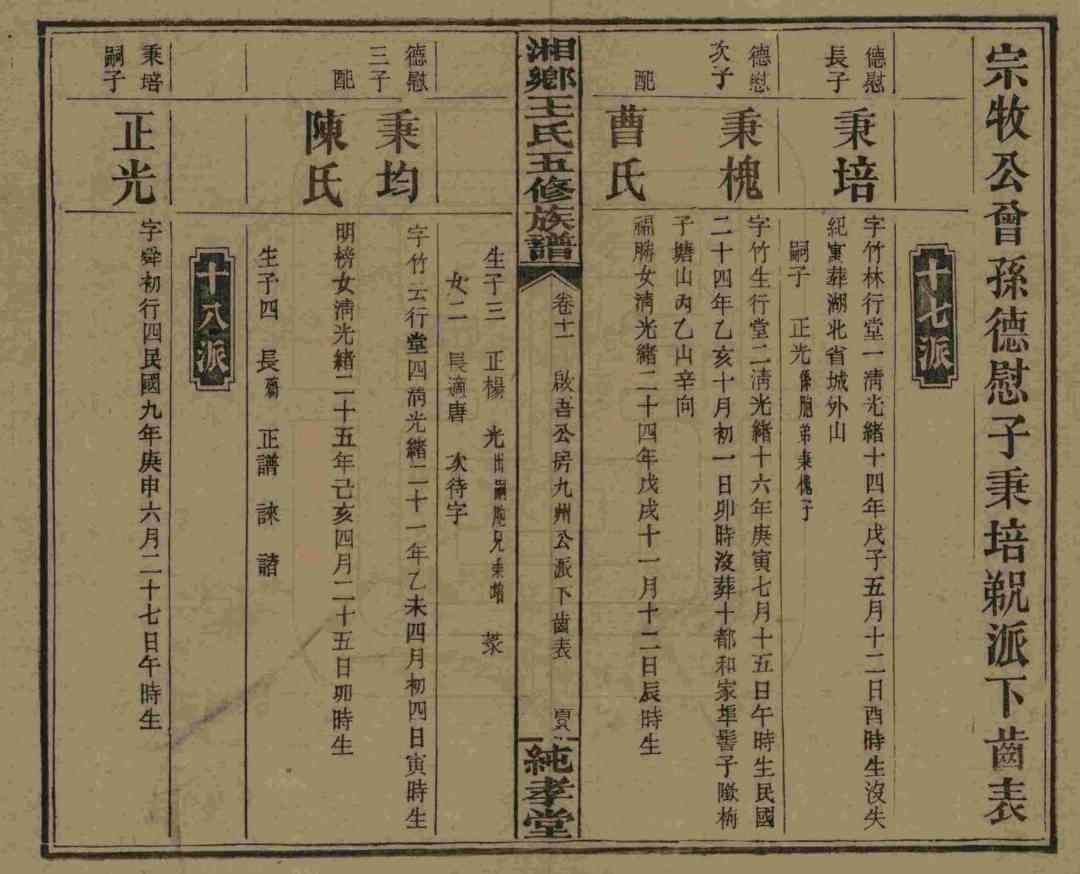 宗牧公曾孫德慰子秉培覡派下齒表
十七派
德慰
長子
秉培
字竹林行堂一清光緒十四年戊子五月十二日酉時生沒失
紀寅葬湖北省城外山
嗣子 正光係胞弟秉槐子
德慰
次子
秉槐
字竹生行堂二清光緒十六年庚寅七月十五日午時生民國
二十四年乙亥十月初一日卯時沒葬十都和家埠髻子
子塘山丙乙山辛向
配
曹氏
福勝女清光緒二十四年戊戌十一月十二日辰時生
湘鄉王氏五修族譜
卷十一 啟吾公房九州公派下齒表
純孝堂
生子三 正楊 光出嗣胞兄秉培 棻
女二 長適唐 次待字
德慰
三子
秉均
字竹云行堂四清光緒二十一年乙未四月初四日寅時生
配
陳氏
明榜女清光緒二十五年己亥四月二十五日卯時生
生子四 長殤 正譜 諫 諎
十八派
秉培
嗣子
正光
字舜初行四民國九年庚申六月二十七日午時生